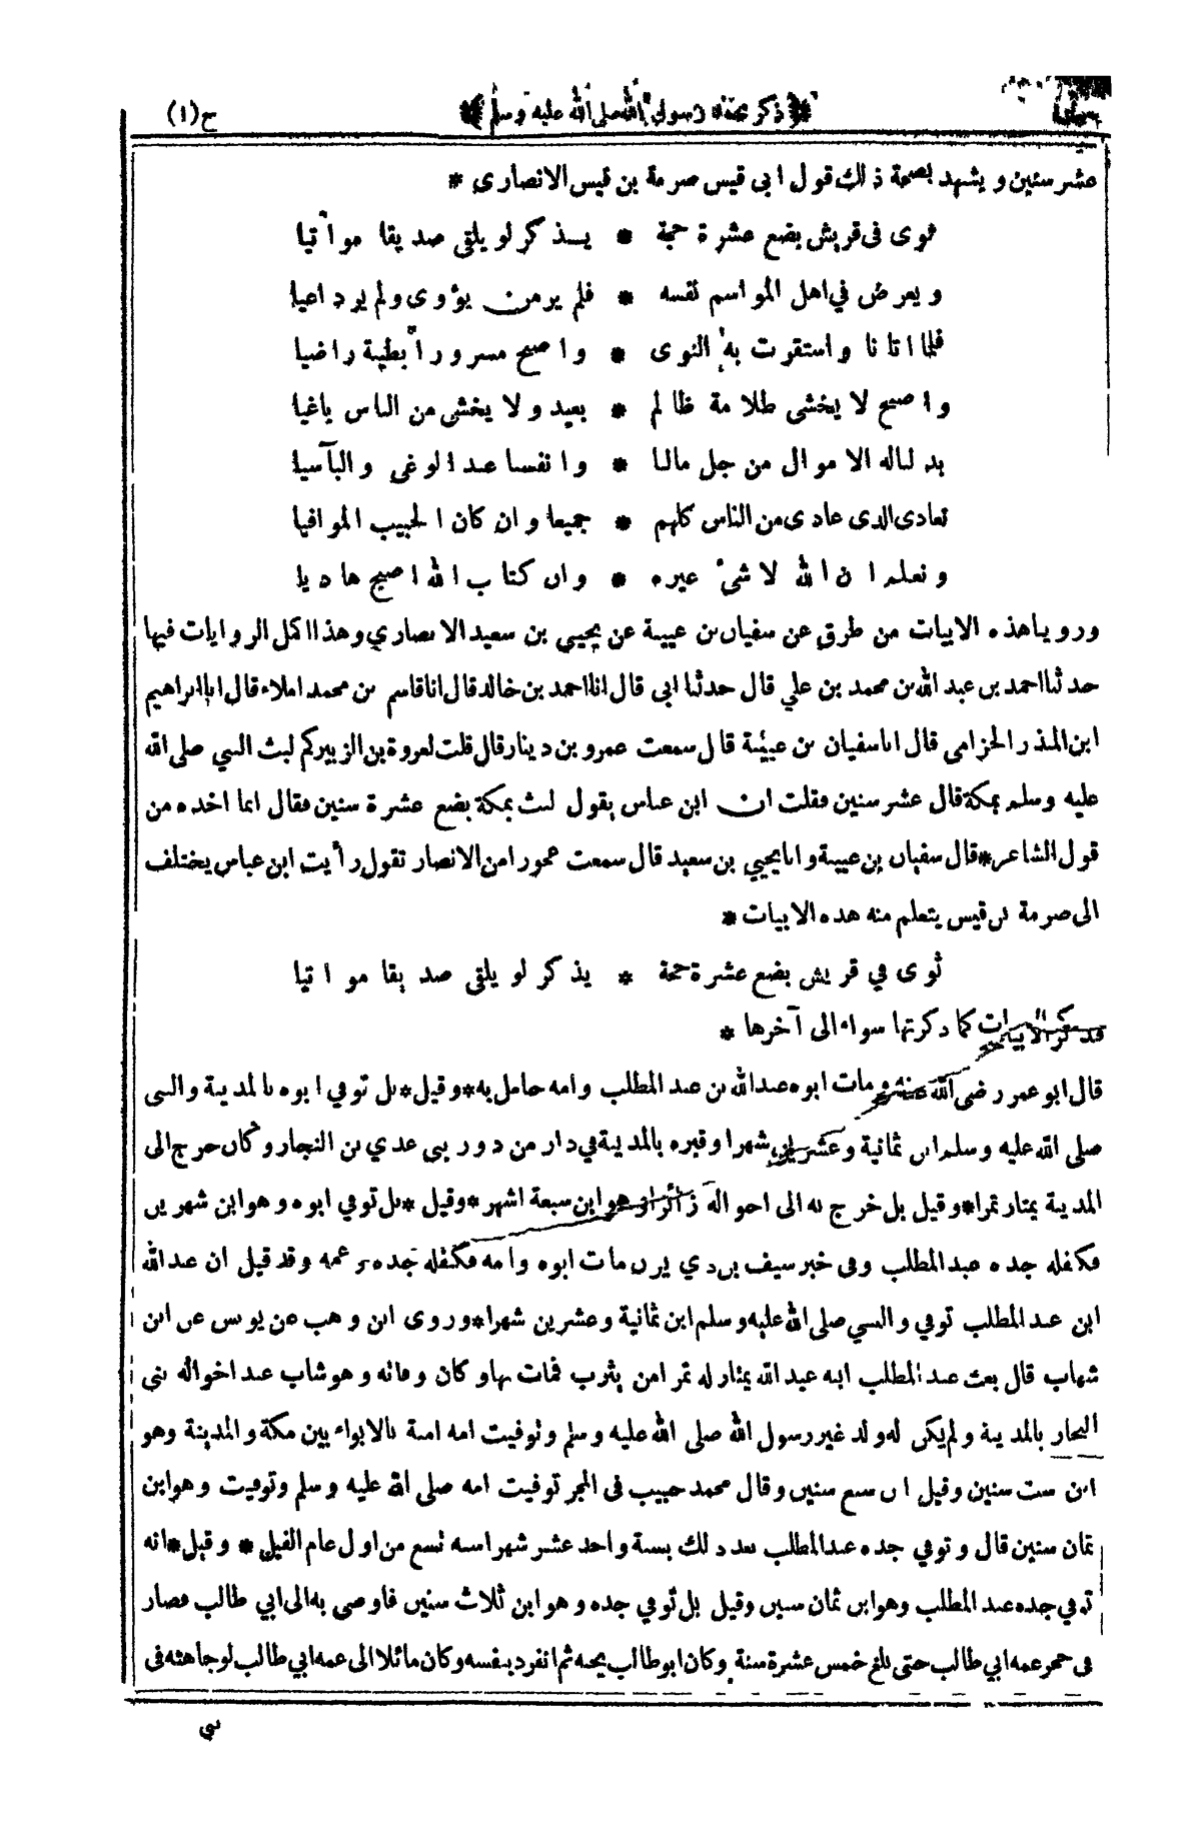 ﴿ ذكر بعثة رسول الله صلى الله عليه وسلم ﴾
ج (١)
عشر سنين ويشهد بصحة ذلك قول ابى قيس صرمة بن قيس الانصارى *
ثوى فى قريش بضع عشرة حجة * يذكر لو يلقى صديقا مواتيا
ويعرض في اهل المواسم نفسه * فلم ير من يؤوى ولم ير داعيا
فلما اتانا واستقرت به النوى * واصبح مسرورا بطيبة راضيا
واصبح لا يخشى ظلامة ظالم * بعيد ولا يخشى من الناس باغيا
بذلنا له الاموال من جل مالنا * وانفسنا عند الوغى والتآسيا
نعادى الذى عادى من الناس كلهم * جميعا وان كان الحبيب الموافيا
ونعلم ان الله لا شئ غيره * وان كتاب الله اصبح هاديا
وروينا هذه الابيات من طرق عن سفيان بن عيينة عن يحيى بن سعيد الانصاري وهذا اكمل الروايات فيها
حدثنا احمد بن عبد الله بن محمد بن علي قال حدثنا ابى قال انا احمد بن خالد قال انا قاسم بن محمد املاء قال انا ابراهيم
ابن المنذر الحزامى قال انا سفيان بن عيينة قال سمعت عمرو بن دينار قال قلت لعروة بن الزبير كم لبث النبي صلى الله
عليه وسلم بمكة قال عشر سنين فقلت ان ابن عباس يقول لبث بمكة بضع عشرة سنين فقال انما اخذه من
قول الشاعر * قال سفيان بن عيينة وانا يحيى بن سعيد قال سمعت عجوزا من الانصار تقول رأيت ابن عباس يختلف
الى صرمة بن قيس يتعلم منه هذه الابيات *
ثوى في قريش بضع عشرة حجة * يذكر لو يلقى صديقا مواتيا
الابيات كما ذكرتها سواء الى آخرها *
قال ابو عمر رضى الله عنه ومات ابوه عبد الله بن عبد المطلب وامه حامل به * وقيل * بل توفي ابوه بالمدينة والنبى
صلى الله عليه وسلم ابن ثمانية وعشرين شهرا وقبره بالمدينة في دار من دور بنى عدي بن النجار وكان خرج الى
المدينة يمتار تمرا * وقيل بل خرج به الى اخواله زائرا وهو ابن سبعة اشهر * وقيل * بل توفي ابوه وهو ابن شهرين
فكفله جده عبد المطلب وفى خبر سيف بن ذي يزن مات ابوه وامه فكفله جده وعمه وقد قيل ان عبد الله
ابن عبد المطلب توفي والنبي صلى الله عليه وسلم ابن ثمانية وعشرين شهرا * وروى ابن وهب عن يونس عن ابن
شهاب قال بعث عبد المطلب ابنه عبد الله يمتار له تمرا من يثرب فمات بها وكان وفاته وهو شاب عند اخواله بنى
النجار بالمدينة ولم يكن له ولد غير رسول الله صلى الله عليه وسلم وتوفيت امه امنة بالابواء بين مكة والمدينة وهو
ابن ست سنين وقيل ابن سبع سنين وقال محمد حبيب فى المحبر توفيت امه صلى الله عليه وسلم وتوفيت وهو ابن
ثمان سنين قال وتوفي جده عبد المطلب بعد ذلك بسنة واحد عشر شهرا سنة تسع من اول عام الفيل * وقيل * انه
توفي جده عبد المطلب وهو ابن ثمان سنين وقيل بل توفي جده وهو ابن ثلاث سنين فاوصى به الى ابي طالب فصار
فى حجر عمه ابي طالب حتى بلغ خمس عشرة سنة وكان ابو طالب يحبه ثم انفرد بنفسه وكان مائلا الى عمه ابي طالب لوجاهته فى
بنى